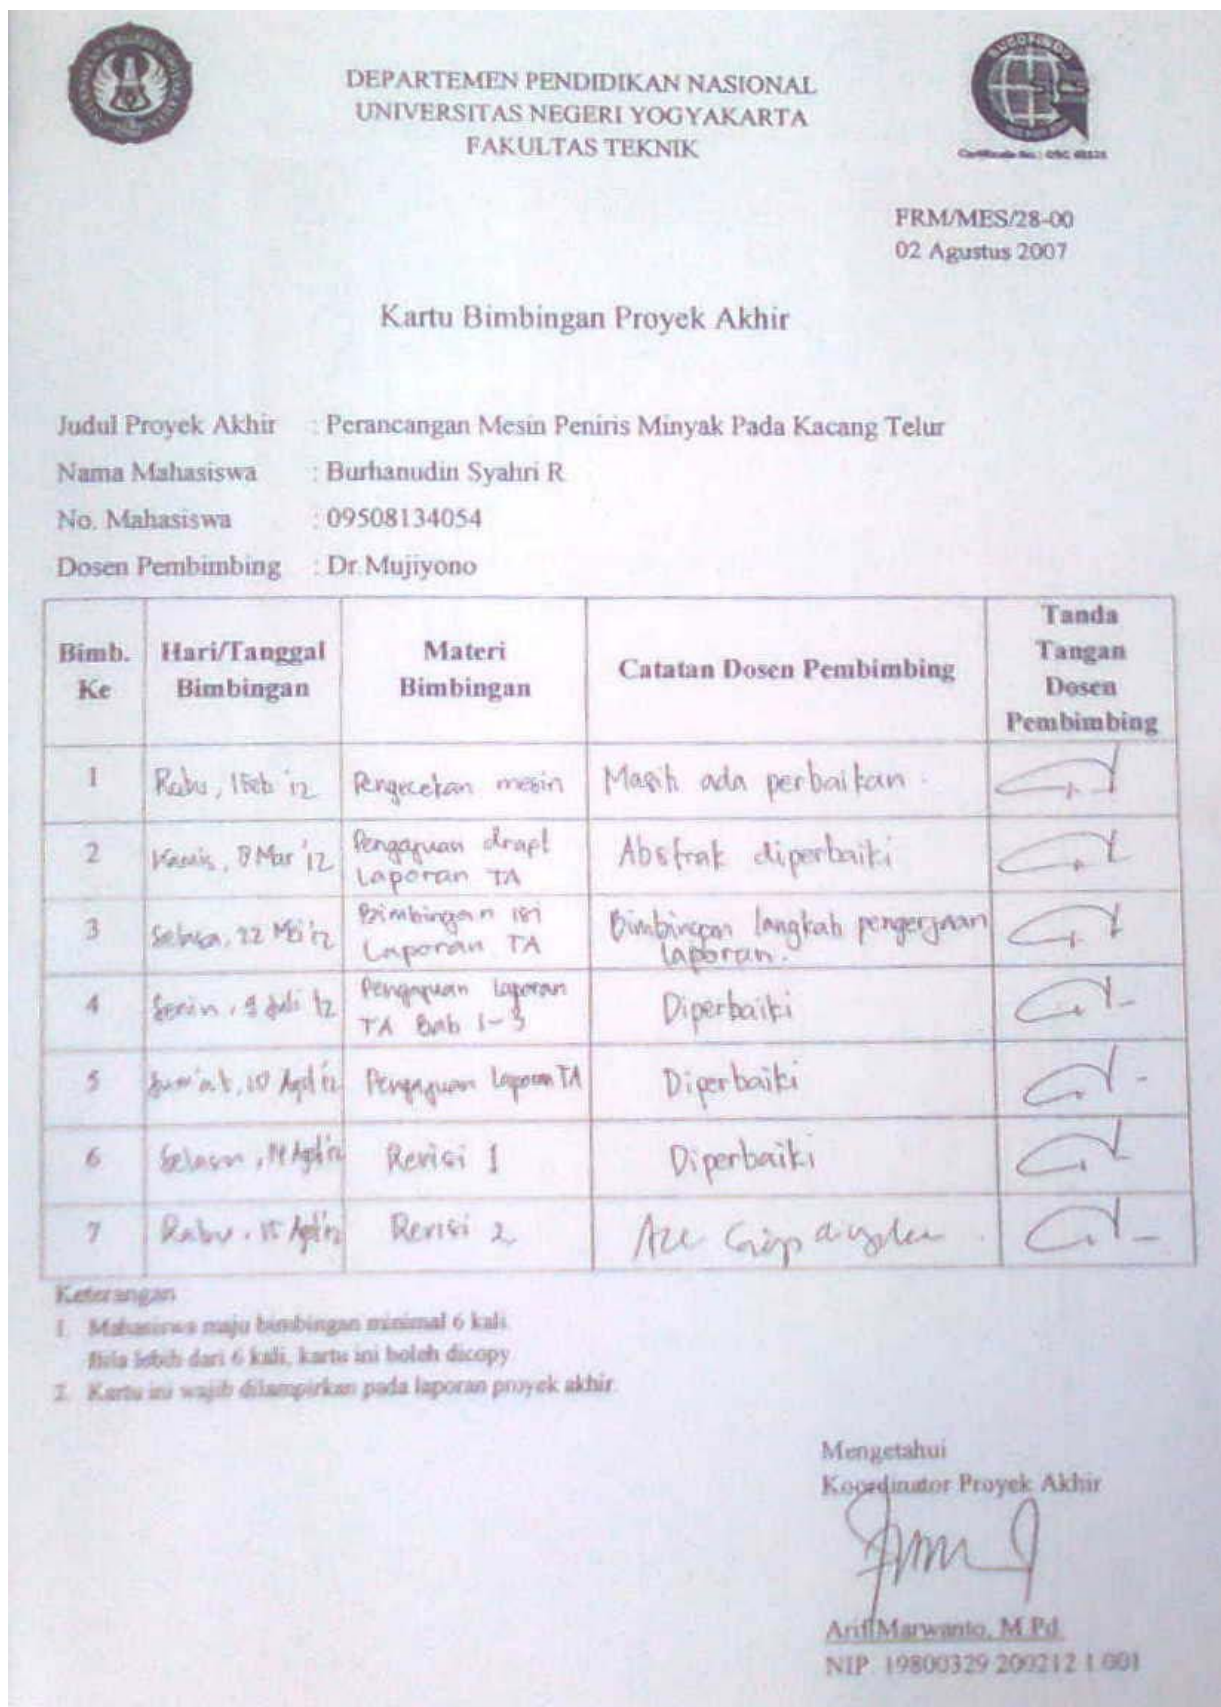 DEPARTEMEN PENDIDIKAN NASIONAL
UNIVERSITAS NEGERI YOGYAKARTA
FAKULTAS TEKNIK
SUCOFINDO
FRM/MES/28-00
02 Agustus 2007
Kartu Bimbingan Proyek Akhir
Judul Proyek Akhir : Perancangan Mesin Peniris Minyak Pada Kacang Telur
Nama Mahasiswa : Burhanudin Syahri R
No. Mahasiswa : 09508134054
Dosen Pembimbing : Dr.Mujiyono
Bimb. Ke Hari/Tanggal Bimbingan Materi Bimbingan Catatan Dosen Pembimbing Tanda Tangan Dosen Pembimbing
1 Rabu, 1 Feb '12 Pengecekan mesin Masih ada perbaikan.
2 Kamis, 8 Mar '12 Pengajuan drapt Laporan TA Abstrak diperbaiki
3 Selasa, 22 Mei '12 Bimbingan isi Laporan TA Bimbingan langkah pengerjaan laporan.
4 Senin, 9 Juli '12 Pengajuan Laporan TA Bab 1-3 Diperbaiki
5 Jum'at, 10 Agst '12 Pengajuan Laporan TA Diperbaiki
6 Selasa, 14 Agst '12 Revisi 1 Diperbaiki
7 Rabu, 15 Agst '12 Revisi 2
Keterangan
1. Mahasiswa maju bimbingan minimal 6 kali.
Bila lebih dari 6 kali, kartu ini boleh dicopy
2. Kartu ini wajib dilampirkan pada laporan proyek akhir.
Mengetahui
Koordinator Proyek Akhir
Arif Marwanto, M.Pd.
NIP. 19800329 200212 1 001